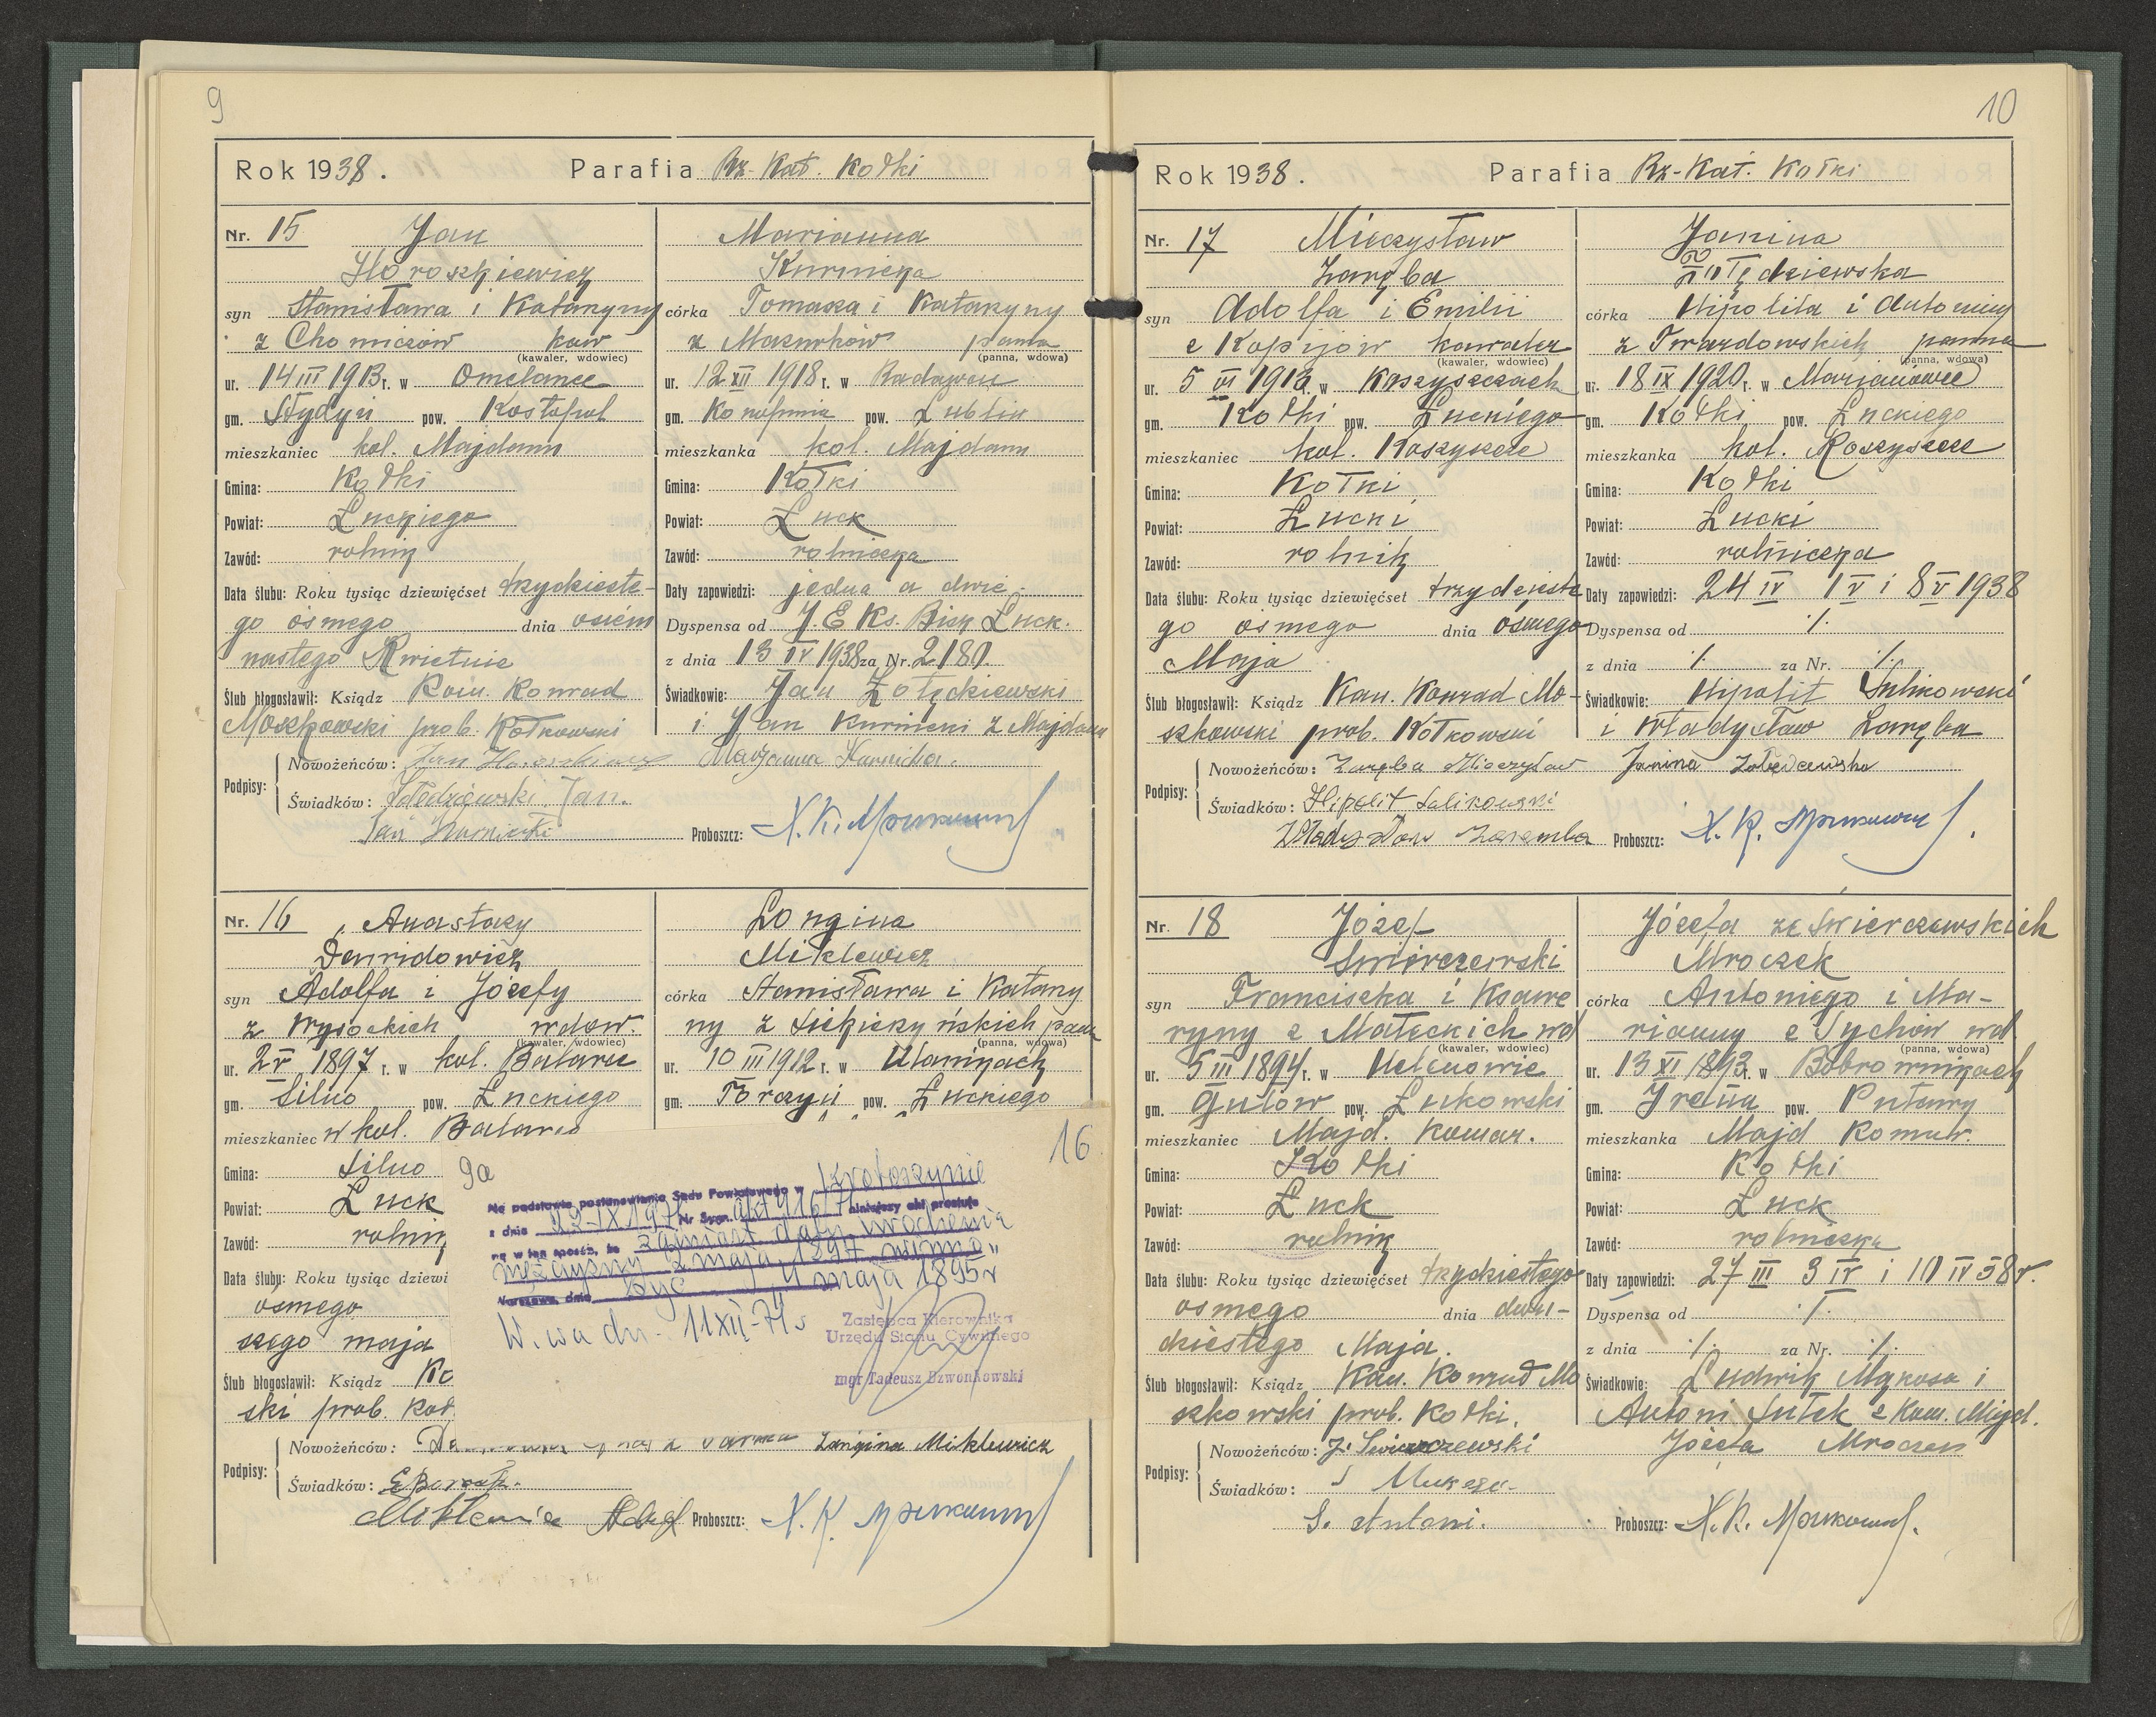 9
Rok 1938. Parafia Rz-Kat. Kołki
Nr. 15 Jan
Horoszkiewicz
syn Stanisława i Katarzyny
z Chomiczów kaw
(kawaler, wdowiec)
ur. 14 III 1913 r. w Omelance
gm. Stydyń pow. Kostopol
mieszkaniec kol. Majdann
Gmina: Kołki
Powiat: Łuckiego
Zawód: rolnik
Data ślubu: Roku tysiąc dziewięćset trzydzieste-
go ósmego dnia osiem
nastego Kwietnia
Ślub błogosławił: Ksiądz Kan. Konrad
Moszkowski prob. Kołkowski
Marianna
Kurnicka
córka Tomasza i Katarzyny
z Mazurków panna
(panna, wdowa)
ur. 12 XII 1918 r. w Radawcu
gm. Konopnica pow. Lublin
mieszkanka kol. Majdann
Gmina: Kołki
Powiat: Łuck
Zawód: rolniczka
Daty zapowiedzi: jedna a dwie
Dyspensa od J. E Ks. Bisk Łuck.
z dnia 13 IV 1938 za Nr. 2180.
Świadkowie: Jan Żołędziewski
i Jan Kurnicki z Majdanu
Podpisy: Nowożeńców: Jan Horoszkiewicz Marjanna Kurnicka.
Świadków: Żołędziewski Jan.
Jan Kurnicki Proboszcz: X. K. Moszkowski
Nr. 16 Anastazy
Dawidowicz
syn Adolfa i Józefy
z Wysockich wdow.
(kawaler, wdowiec)
ur. 2 V 1897 r. w kol. Batarze
gm. Silno pow. Łuckiego
mieszkaniec w kol. Batarze
Gmina: Silno
Powiat: Łuck
Zawód: rolnik
Data ślubu: Roku tysiąc dziewi
ósmego
szego maja
Ślub błogosławił: Ksiądz Ko
ski prob. Koł
Longina
Miklewicz
córka Stanisława i Katarzy
ny z panna
(panna, wdowa)
ur. 10 III 1912 r. w Ułanikach
gm. Torczyń pow. Łuckiego
9a 16
Na podstawie postanowienia Sądu Powiatowego w Krotoszynie
z dnia 22-IX 1971 Nr Sygn. niniejszy akt prostuje
się w ten sposób, że zamiast daty urodzenia
mężczyzny "2 maja 1897 winno
być "4 maja 1895 r
Warszawa, dnia
W. wa dn. 11 XII-71 r
Zastępca Kierownika
Urzędu Stanu Cywilnego
mgr Tadeusz Dzwonkowski
Podpisy: Nowożeńców: Longina Miklewicz
Świadków:
Miklewicz Adolf Proboszcz: X. K. Moszkowski
10
Rok 1938. Parafia Rz-Kat. Kołki
Nr. 17 Mieczysław
Zaręba
syn Adolfa i Emilii
z Kopijów kawaler
(kawaler, wdowiec)
ur. 5 VI 1913 w Koszyszczach
gm. Kołki pow. Łuckiego
mieszkaniec kol. Koszyszcze
Gmina: Kołki
Powiat: Łucki
Zawód: rolnik
Data ślubu: Roku tysiąc dziewięćset trzydzieste
go ósmego dnia ósmego
Maja
Ślub błogosławił: Ksiądz Kan. Konrad Mo-
szkowski prob. Kołkowski
Janina
Żołędziewska
córka Hipolita i Antoniny
z Twardowskich panna
(panna, wdowa)
ur. 18 IX 1920 r. w Marjanówce
gm. Kołki pow. Łuckiego
mieszkanka kol. Koszyszcze
Gmina: Kołki
Powiat: Łucki
Zawód: rolniczka
Daty zapowiedzi: 24 IV 1 V i 8 V 1938
Dyspensa od ·/·
z dnia ·/· za Nr. ·/·
Świadkowie: Hipolit Sulikowski
i Władysław Zaręba
Podpisy: Nowożeńców: Zaręba Mieczysław Janina Żołędziewska
Świadków: Hipolit Sulikowski
Władysław Zaremba Proboszcz: X. K. Moszkowski
Nr. 18 Józef
Świerczewski
syn Franciszka i Ksawe
ryny z Małeckich wd
(kawaler, wdowiec)
ur. 5 III 1894 r. w Helenowie
gm. Gułów pow. Łukowski
mieszkaniec Majd. Komar.
Gmina: Kołki
Powiat: Łuck
Zawód: rolnik
Data ślubu: Roku tysiąc dziewięćset trzydziestego
ósmego dnia dwu-
dziestego Maja.
Ślub błogosławił: Ksiądz Kan. Konrad Mo
szkowski prob. Kołki.
Józefa ze Świerczewskich
Mroczek
córka Antoniego i Ma-
rianny z Sychów wd
(panna, wdowa)
ur. 13 XI 1893 r. w Bobrownikach
gm. Irena pow. Puławy
mieszkanka Majd Komar.
Gmina: Kołki
Powiat: Łuck
Zawód: rolniczka
Daty zapowiedzi: 27 III 3 IV i 10 IV 38 r.
Dyspensa od ·/·
z dnia ·/· za Nr. ·/·
Świadkowie: Ludwik Mąkosa i
Antoni Sułek z Kom. Majd.
Podpisy: Nowożeńców: J. Świerczewski Józefa Mroczek
Świadków:
S. Antoni. Proboszcz: X. K. Moszkowski.